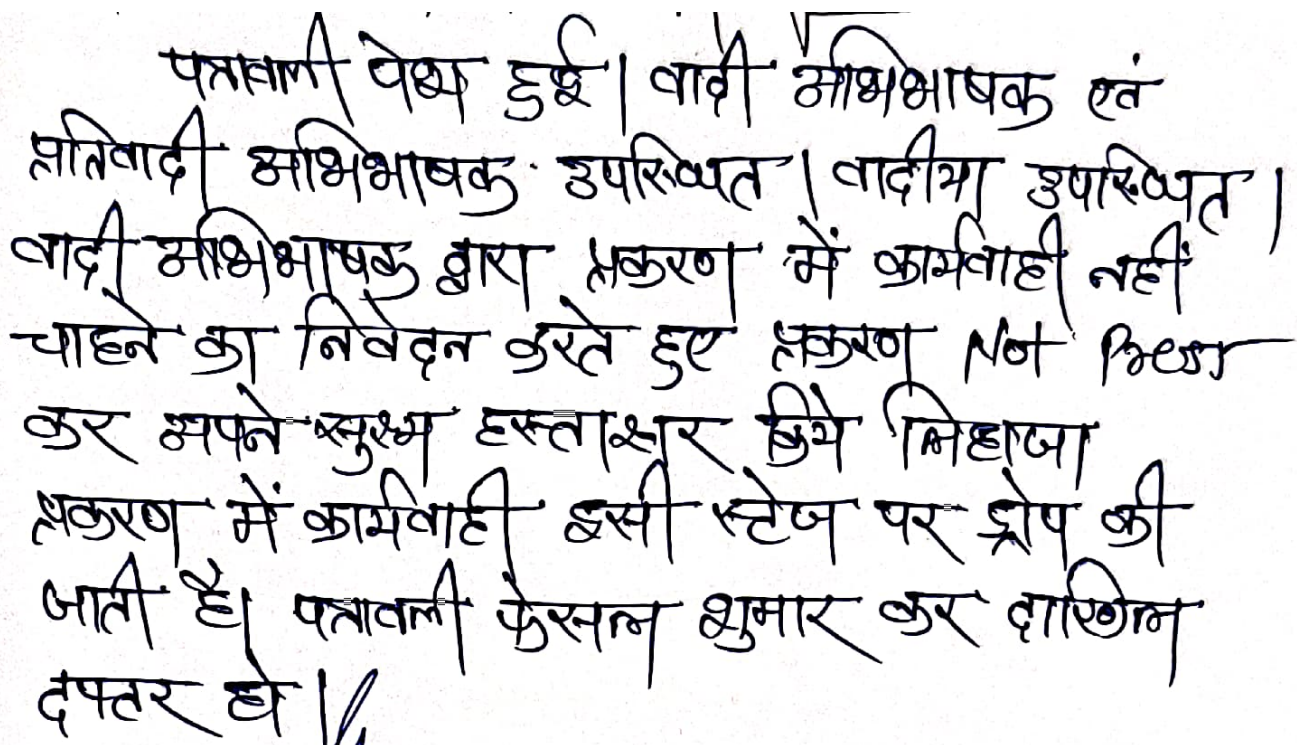 पत्रावली पेश हुई। वादी अभिभाषक एवं
प्रतिवादी अभिभाषक उपस्थित। वादीया उपस्थित।
वादी अभिभाषक द्वारा प्रकरण में कार्यवाही नहीं
चाहने का निवेदन करते हुए प्रकरण Not Press
कर अपने हस्ताक्षर किये लिहाजा
प्रकरण में कार्यवाही इसी स्टेज पर ड्रोप की
जाती है। पत्रावली फैसल शुमार कर दाखिल
दफ्तर हो।